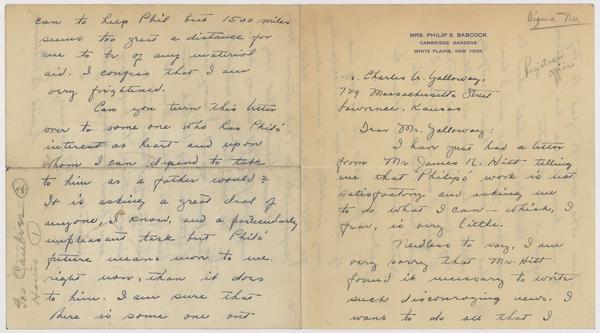 Sigma Nu
MRS. PHILIP S. BABCOCK
CAMBRIDGE GARDENS
WHITE PLAINS, NEW YORK
Registrar's
office
Mr. Charles A. Galloway,
729 Massachusetts Street
Lawrence, Kansas
Dear Mr. Galloway:
I have just had a letter
from Mr. James K. Hitt telling
me that Philip's work is not
satisfactory and asking me
to do what I can — which, I
fear, is very little.
Needless to say, I am
very sorry that Mr. Hitt
found it necessary to write
such discouraging news. I
want to do all that I
can to help Phil but 1500 miles
seems too great a distance for
me to be of any material
aid. I confess that I am
very frightened.
Can you turn this letter
over to some one who has Phil's
interest at heart and upon
whom I can depend to talk
to him as a father would?
It is asking a great deal of
anyone, I know, and a particularly
unpleasant task but Phil's
future means more to me
right now, than it does
to him. I am sure that
there is some one out
Geo
2
1